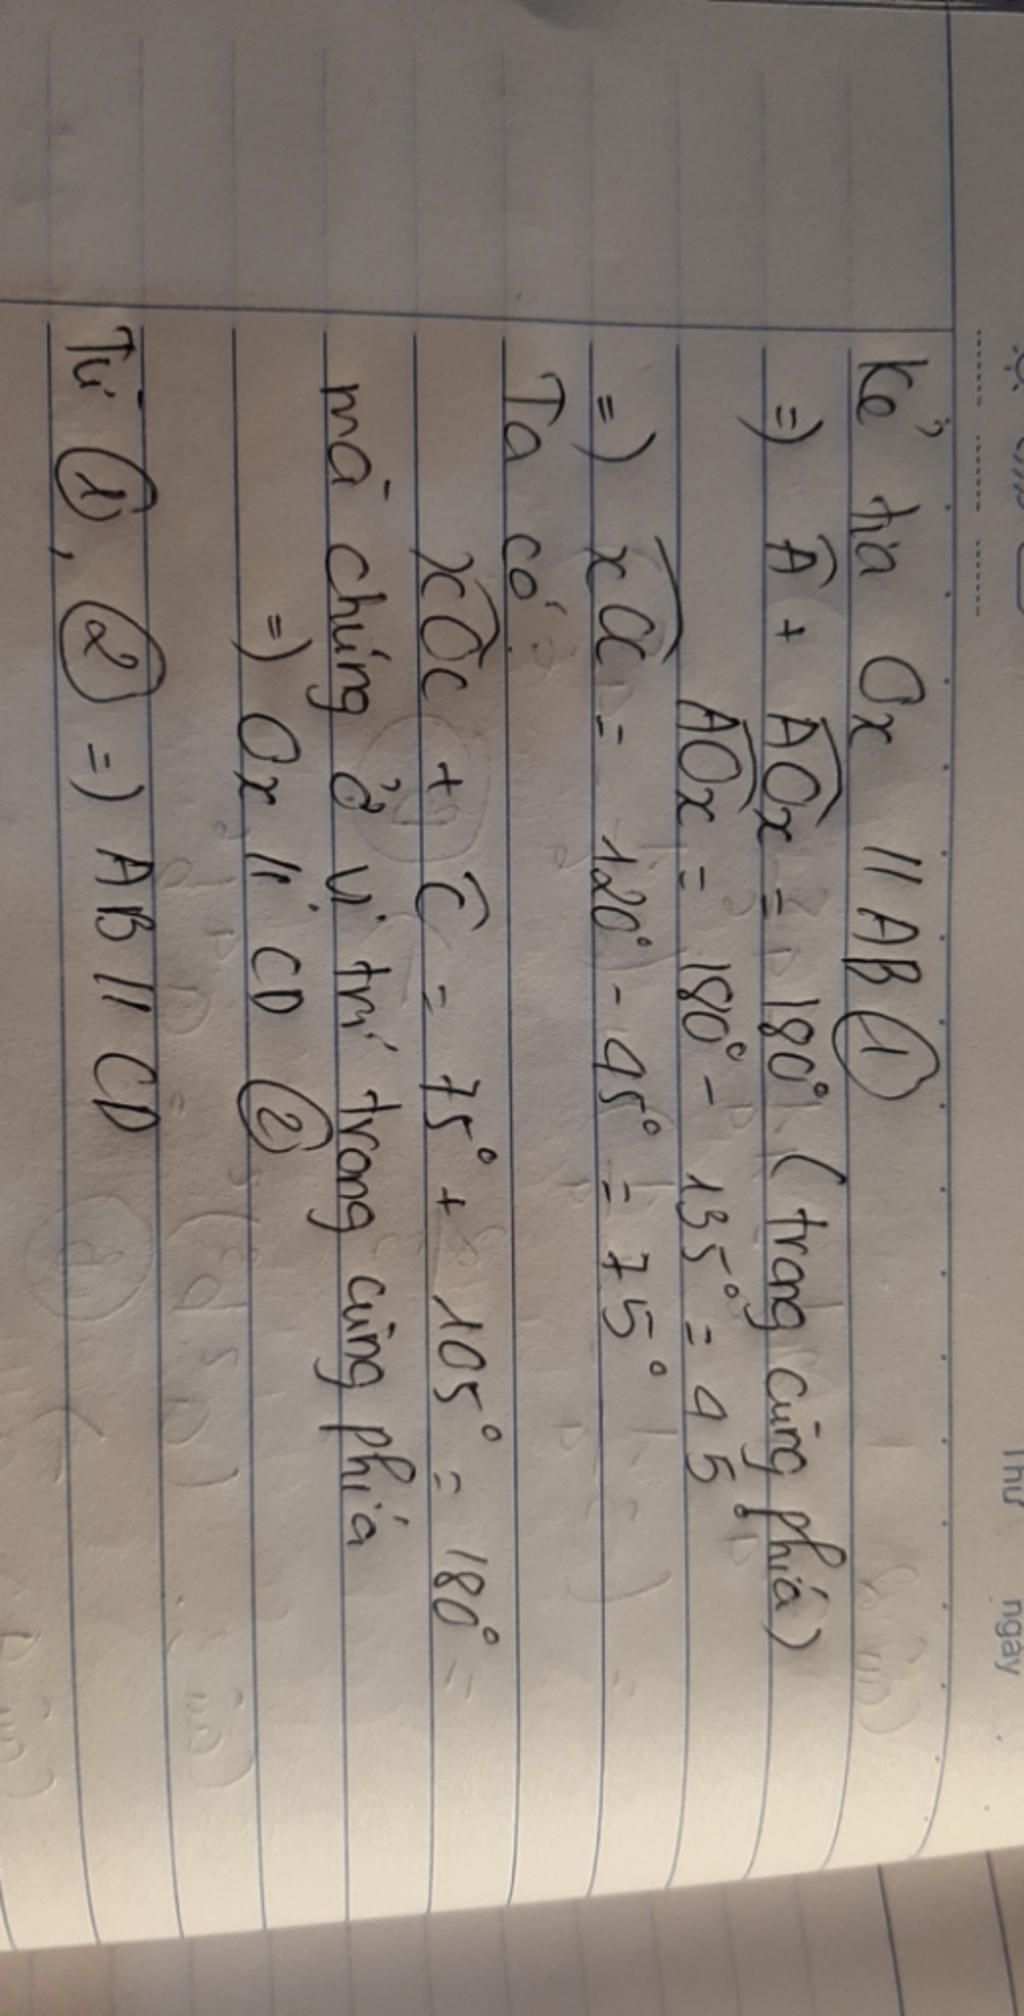 Thứ ngày
Kẻ tia Ox // AB ①
=) Â + AÔx = 180° (trong cùng phía)
AÔx = 180° - 135° = 45°
=) xÔC = 120° - 45° = 75°
Ta có:
xÔC + Ĉ = 75° + 105° = 180°
mà chúng ở vị trí trong cùng phía
=) Ox // CD ②
Từ ①, ② =) AB // CD